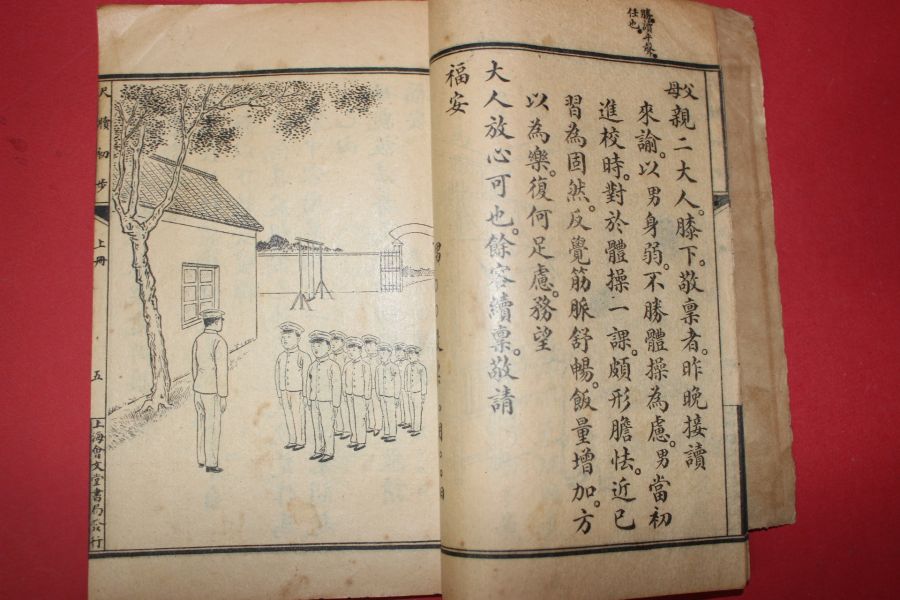 勝。讀平聲。
任也。
父母親二大人。膝下。敬稟者。昨晚接讀
來諭。以男身弱。不勝體操為慮。男當初
進校時。對於體操一課。頗形膽怯。近已
習為固然。反覺筋脈舒暢。飯量增加。方
以為樂。復何足慮。務望
大人放心可也。餘容續稟。敬請
福安
尺牘初步 上冊 五 上海會文堂書局發行